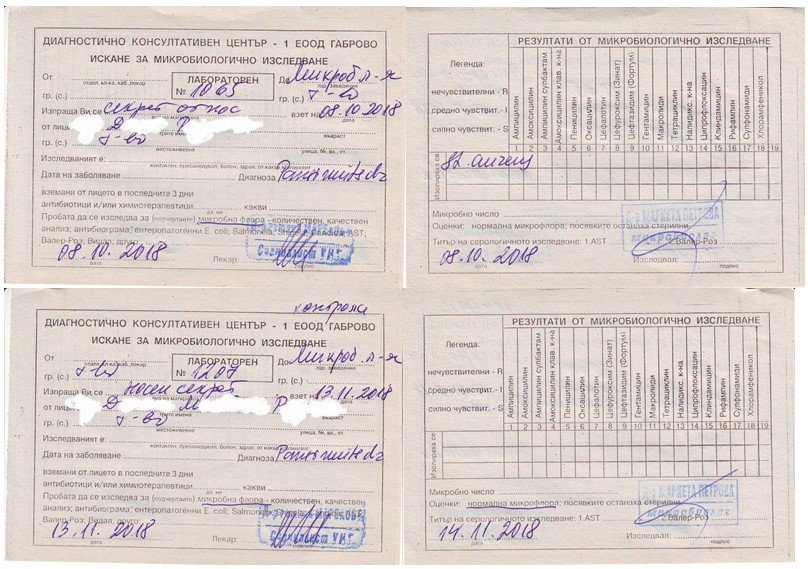 ДИАГНОСТИЧНО КОНСУЛТАТИВЕН ЦЕНТЪР - 1 ЕООД ГАБРОВО
ИСКАНЕ ЗА МИКРОБИОЛОГИЧНО ИЗСЛЕДВАНЕ
От
отдел, кл-ка, каб. лекар
ЛАБОРАТОРЕН
№ 1065
До Микроб. л-я
здр. заведение
гр. (с.)
гр. (с.) Г-во
Изпраща Ви се секрет от нос взет на 08.10.2018
от лице Д Р
гр. (с.) Г-во
възраст
местоживеене
улица, №, вх., ет.
Изследваният е:
контактен, преболедувал, болен, здрав, от какъв контингент
Дата на заболяване Диагноза Rhinosinusitis
вземани от лицето в последните 3 дни
антибиотици и/или химиотерапевтици какви
да, не
Пробата да се изследва за (подчертайте) микробна флора - количествен, качествен
анализ, антибиограма; ентеропатогенни E. coli; Salmonela, Shigela
Валер-Роз; Видал, друго
08.10.2018
дата
Лекар:
Специалист УНГ
РЕЗУЛТАТИ ОТ МИКРОБИОЛОГИЧНО ИЗСЛЕДВАНЕ
Легенда:
нечувствителни - R
средно чувствит. - I
силно чувствит. - S
Ампицилин
Амоксицилин
Ампицилин сулбактам
Амоксицилин клав. к-на
Пеницилин
Оксацилин
Цефалотин
Цефуроксим (Зинат)
Цефтазидим (Фортум)
Гентамицин
Макролиди
Тетрациклин
Налидикс. к-на
Ципрофлоксацин
Клиндамицин
Рифампин
Сулфонамиди
Хлорамфеникол
1 2 3 4 5 6 7 8 9 10 11 12 13 14 15 16 17 18 19
Изолираха се
Микробно число
Оценки: нормална микрофлора; посявките останаха стерилни
Титър на серологичното изследване: 1.AST 2.Валер-Роз
Д-р МАРИЕТА ПЕТРОВА
микробиолог
08.10.2018
дата
Изследвал:
подпис
контрола
ДИАГНОСТИЧНО КОНСУЛТАТИВЕН ЦЕНТЪР - 1 ЕООД ГАБРОВО
ИСКАНЕ ЗА МИКРОБИОЛОГИЧНО ИЗСЛЕДВАНЕ
От
отдел, кл-ка, каб. лекар
ЛАБОРАТОРЕН
№ 1207
До Микроб. л-я
здр. заведение
гр. (с.) Г-во
гр. (с.)
Изпраща Ви се носен секрет взет на 13.11.2018
от лице Д М Р
гр. (с.) Г-во
възраст
местоживеене
улица, №, вх., ет.
Изследваният е:
контактен, преболедувал, болен, здрав, от какъв контингент
Дата на заболяване Диагноза Rhinosinusitis
вземани от лицето в последните 3 дни
антибиотици и/или химиотерапевтици какви
да, не
Пробата да се изследва за (подчертайте) микробна флора - количествен, качествен
анализ, антибиограма; ентеропатогенни E. coli; Salmonela, Shigela
Валер-Роз; Видал, друго
13.11.2018
дата
Лекар:
Специалист УНГ
РЕЗУЛТАТИ ОТ МИКРОБИОЛОГИЧНО ИЗСЛЕДВАНЕ
Легенда:
нечувствителни - R
средно чувствит. - I
силно чувствит. - S
Ампицилин
Амоксицилин
Ампицилин сулбактам
Амоксицилин клав. к-на
Пеницилин
Оксацилин
Цефалотин
Цефуроксим (Зинат)
Цефтазидим (Фортум)
Гентамицин
Макролиди
Тетрациклин
Налидикс. к-на
Ципрофлоксацин
Клиндамицин
Рифампин
Сулфонамиди
Хлорамфеникол
1 2 3 4 5 6 7 8 9 10 11 12 13 14 15 16 17 18 19
Изолираха се
Микробно число
Оценки: нормална микрофлора; посявките останаха стерилни
Титър на серологичното изследване: 1.AST 2.Валер-Роз
Д-р МАРИЕТА ПЕТРОВА
микробиолог
14.11.2018
дата
Изследвал:
подпис